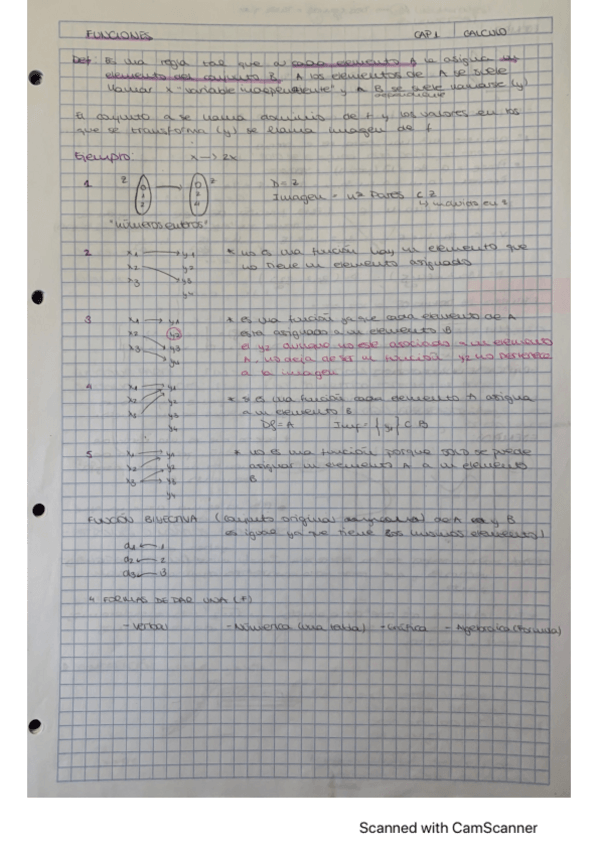 FUNCIONES CAP 1 CALCULO
Def Es una regla tal que a cada elemento A le asigna un
elemento del conjunto B. A los elementos de A se suele
llamar x "variable independiente" y A B se suele variable (y)
dependiente
El conjunto a se llama dominio de f y los valores en los
que se transforma (y) se llama imagen de f
Ejemplo: x → 2x
1 Z 0 1 2 → 0 2 4 Z D = Z
Imagen = nº Pares C Z
"números enteros"
2 x1 y1 * no es una función hay un elemento que
x2 y2 no tiene un elemento asignado
x3 y3
y4
3 x1 → y1 * es una función ya que cada elemento de A
x2 y2 esta asignado a un elemento B
x3 y3 el y2 aunque no este asociado a un elemento
y4 A. no deja de ser un función y2 no pertenece
a la imagen
4 x1 y1 * si es una función cada elemento A asigna
x2 y2 a un elemento B
x3 y3 Df = A Imf = { y1 } C B
y4
5 x1 y1 * no es una función porque SOLO se puede
x2 y2 asignar un elemento A a un elemento
x3 y3 B
y4
FUNCIÓN BIYECTIVA (conjunto original de A y B
es igual ya que tiene los mismos elementos)
a1 1
a2 2
a3 3
4 FORMAS DE DAR UNA (F)
- Verbal - Númerica (una tabla) - Gráfica - Algebraica (Formula)
Scanned with CamScanner